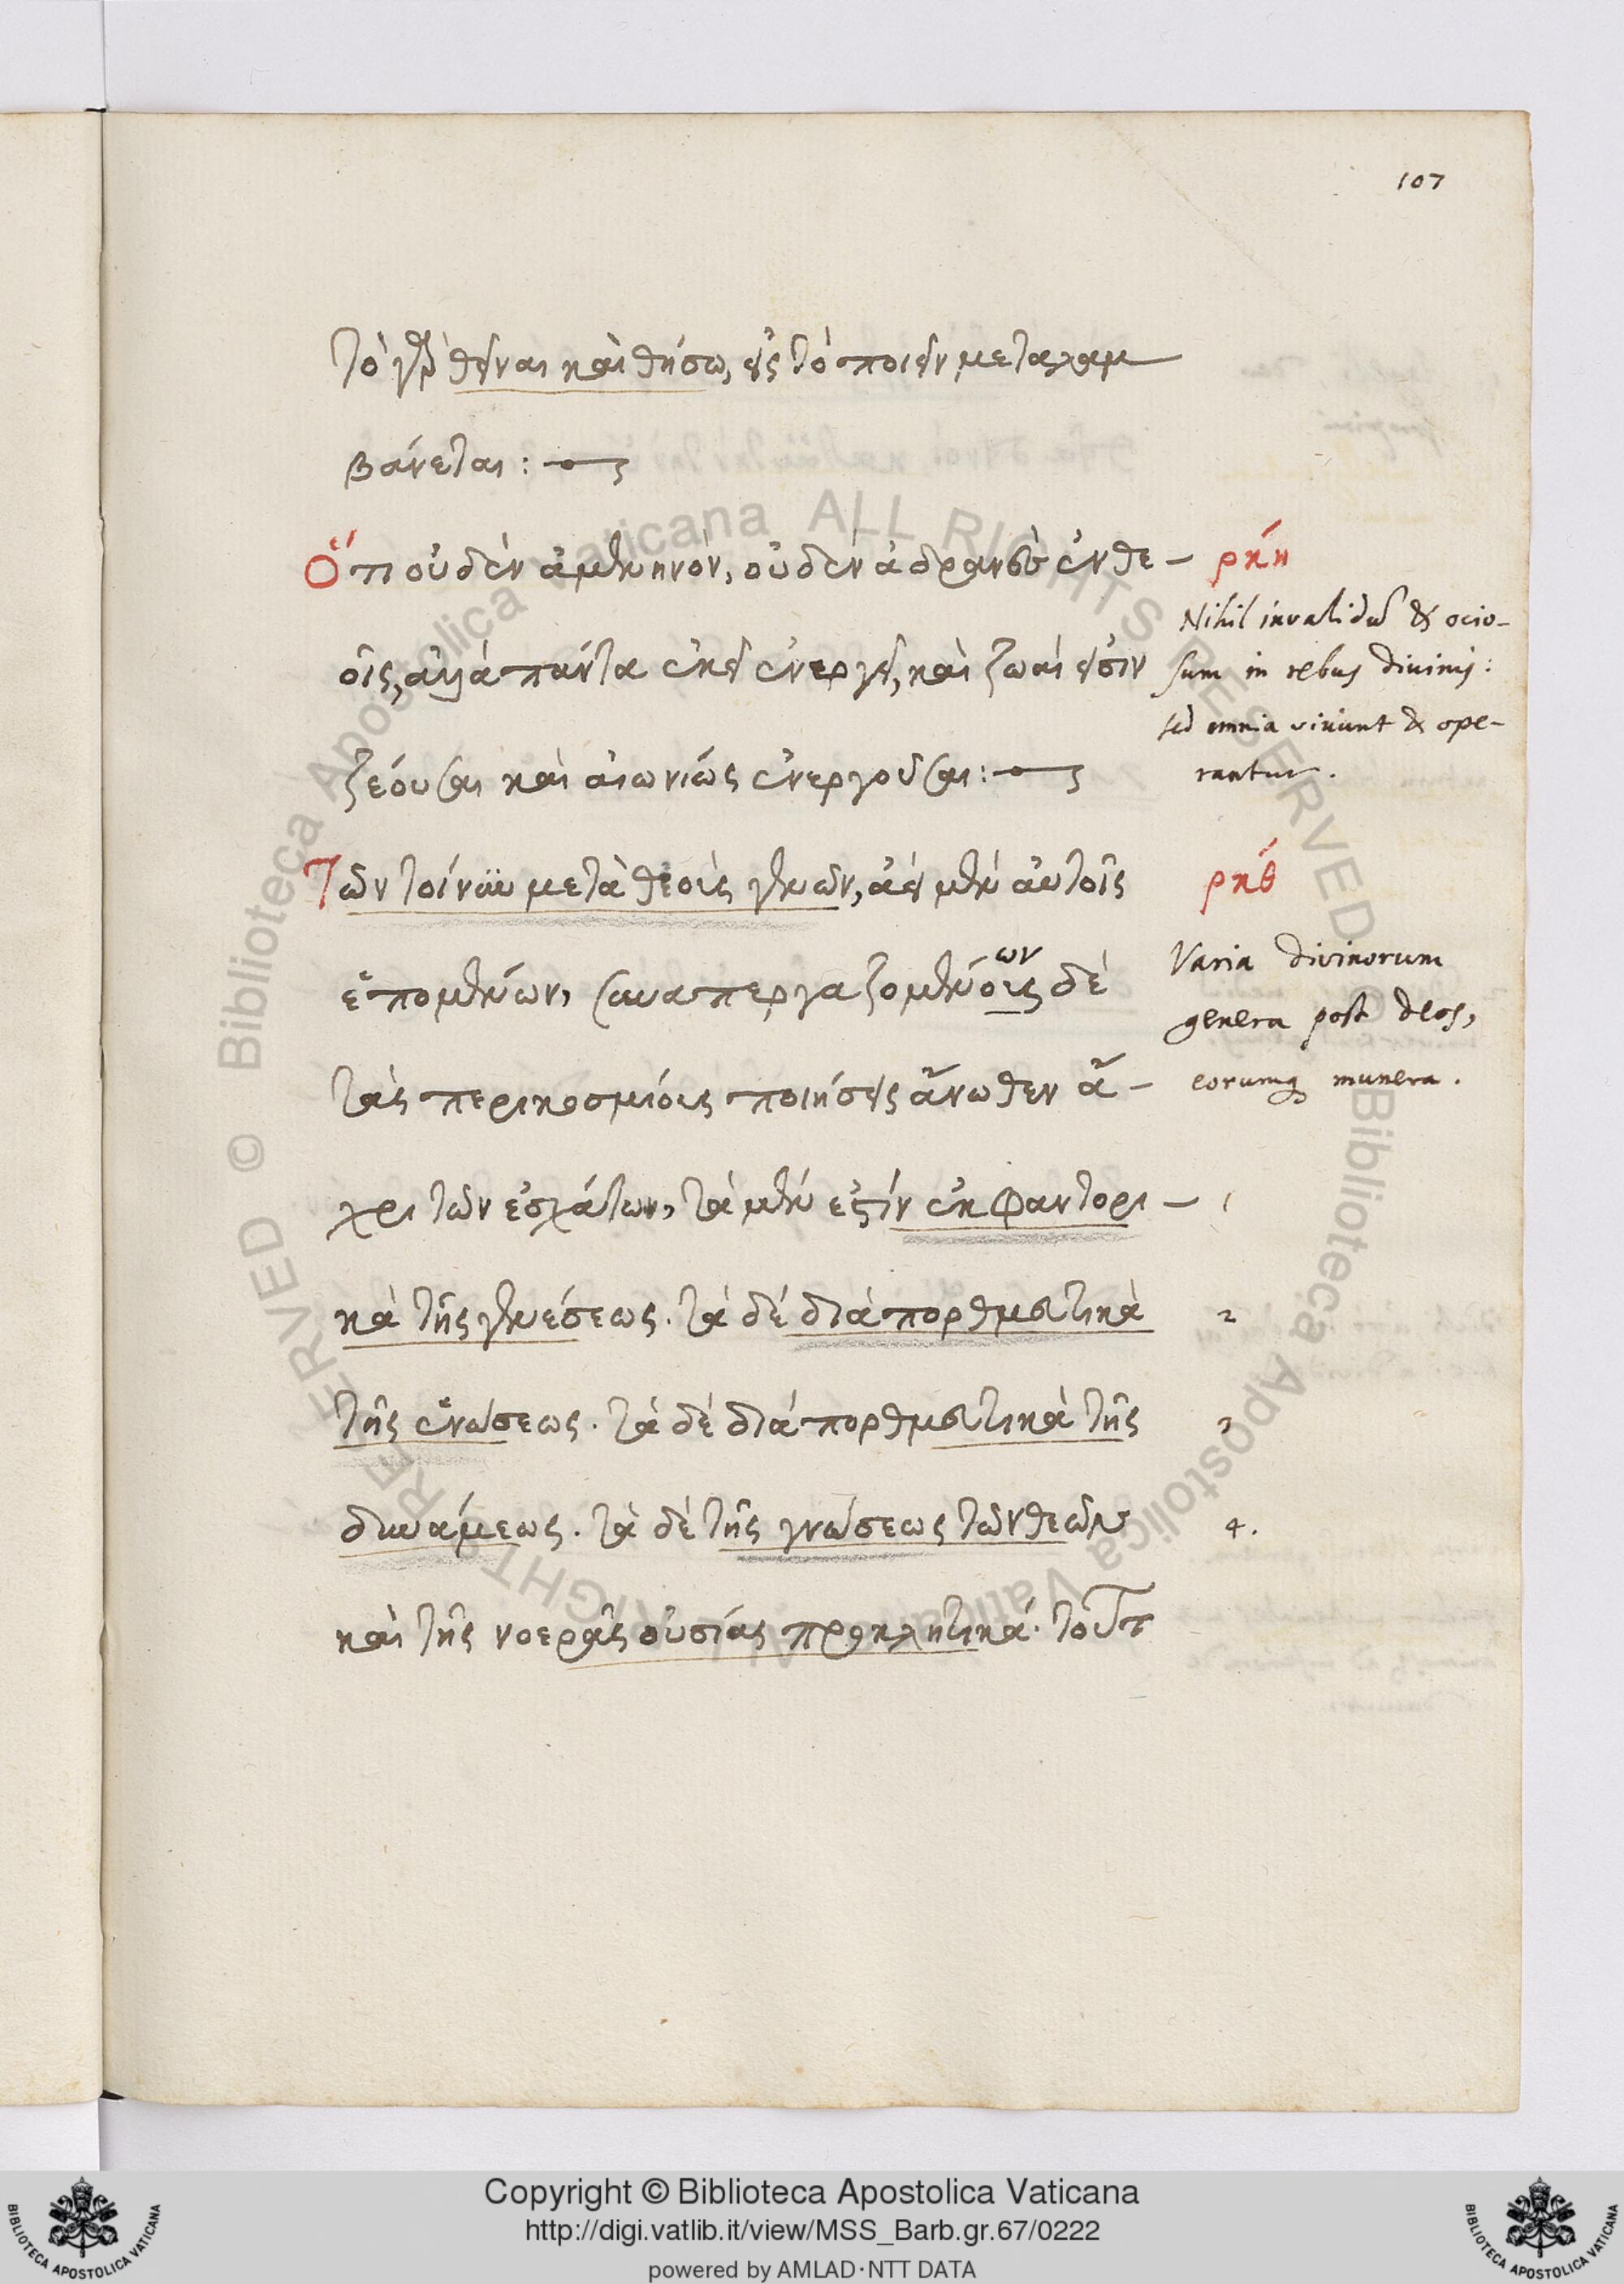 107
τὸ γὰρ θεῖναι καὶ θήσω, εἰς τὸ ποιεῖν μεταλαμ
βάνεται :
Ὅτι οὐδὲν ἀμενηνὸν, οὐδὲν ἀδρανὲς ἐν θε-
οῖς, ἀλλὰ πάντα ἐκεῖ ἐνεργεῖ, καὶ ζωαί εἰσιν
ζέουσαι καὶ αἰωνίως ἐνεργοῦσαι :
Τῶν τοίνυν μετὰ θεοὺς γενῶν, ἀεὶ μὲν αὐτοῖς
ἑπομένων, συναπεργαζομένους δὲ
ων
τὰς περικοσμίους ποιήσεις ἄνωθεν ἄ-
χρι τῶν ἐσχάτων, τὰ μέν ἐστίν ἐκφαντορι-
κὰ τῆς γενέσεως. τὰ δὲ διαπορθμευτικὰ
τῆς ἑνώσεως. τὰ δὲ διαπορθμευτικὰ τῆς
δυνάμεως. τὰ δὲ τῆς γνώσεως τῶν θεῶν
καὶ τῆς νοερᾶς οὐσίας προκλητικά. τούτ
ρκή
Nihil invalidum & ocio-
sum in rebus divinis:
sed omnia vivunt & ope-
rantur.
ρκθ
Varia divinorum
genera post deos,
eorumq munera.
1
2
3
4.
Copyright © Biblioteca Apostolica Vaticana
http://digi.vatlib.it/view/MSS_Barb.gr.67/0222
powered by AMLAD·NTT DATA
BIBLIOTECA APOSTOLICA VATICANA
BIBLIOTECA APOSTOLICA VATICANA
© Biblioteca Apostolica Vaticana ALL RIGHTS RESERVED © Biblioteca Apostolica Vaticana ALL RIGHTS RESERVED